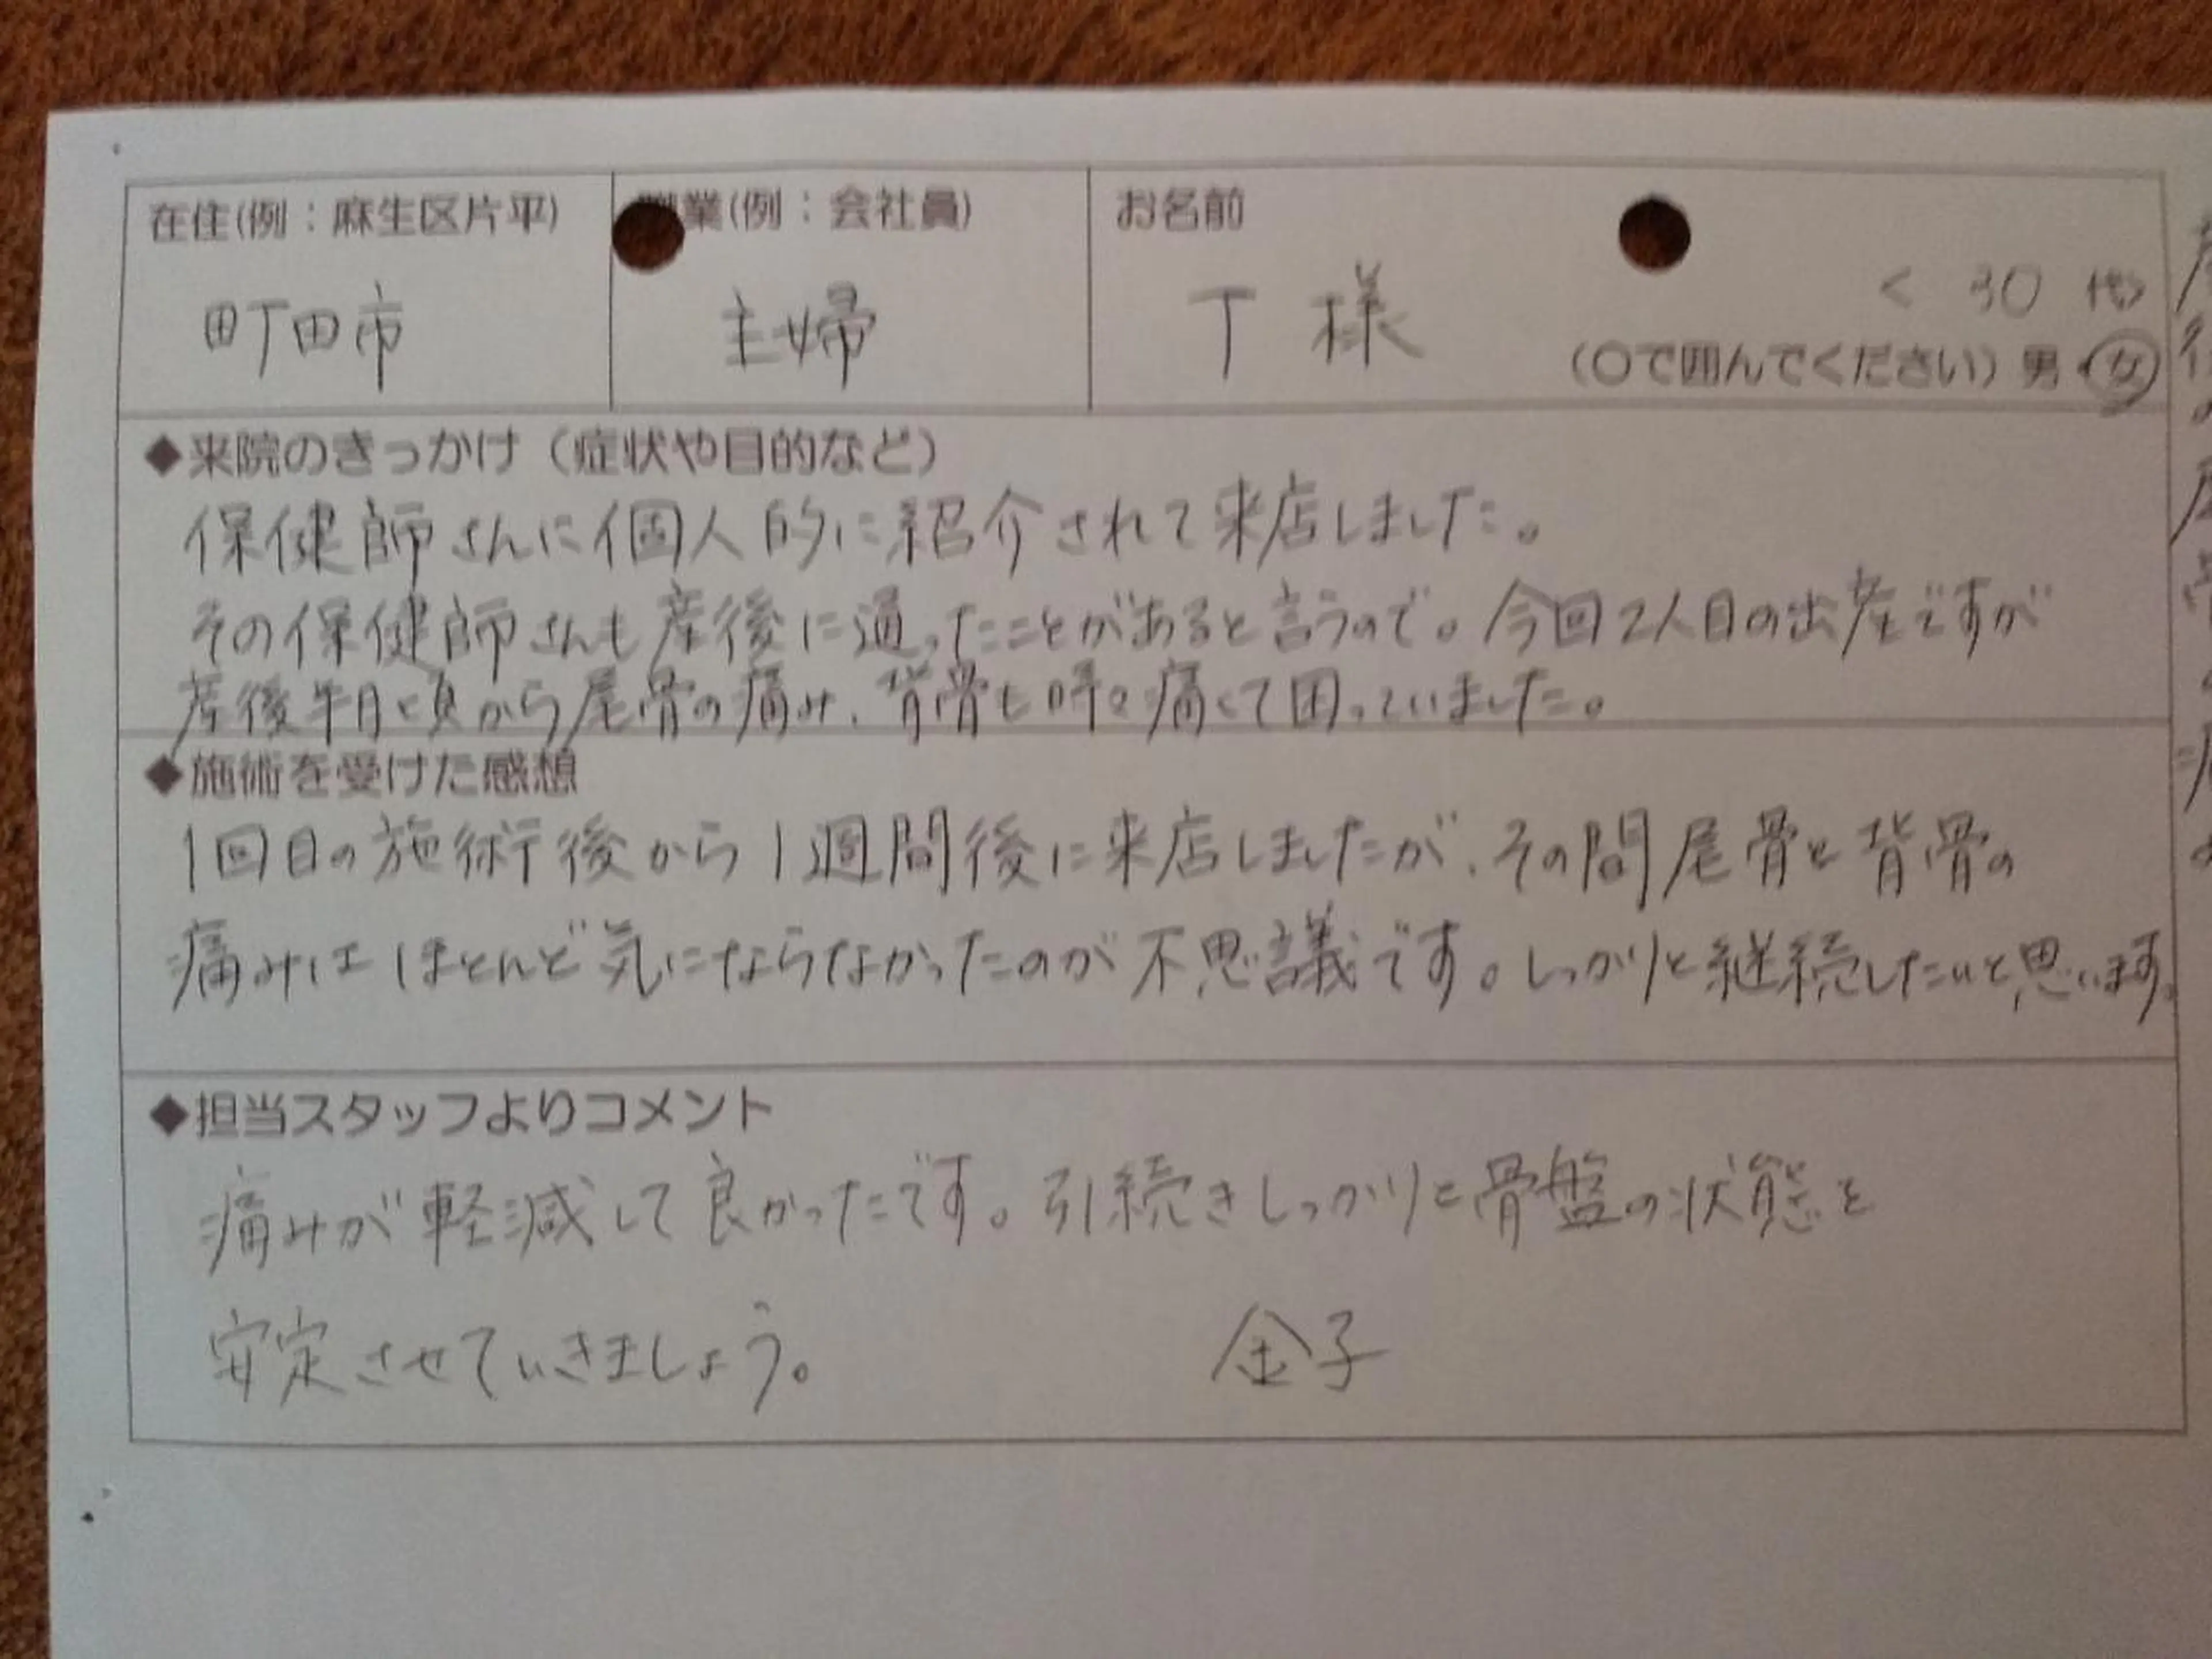 在住(例：麻生区片平)
業(例：会社員)
お名前
町田市
主婦
T 様
< 30 代>
(○で囲んでください) 男・女
◆来院のきっかけ（症状や目的など）
保健師さんに個人的に紹介されて来店しました。
その保健師さんも産後に通ったことがあると言うので。今回2人目の出産ですが
産後半月頃から尾骨の痛み、背骨も時々痛くて困っていました。
◆施術を受けた感想
1回目の施術後から1週間後に来店しましたが、その間尾骨と背骨の
痛みはほとんど気にならなかったのが不思議です。しっかりと継続したいと思います。
◆担当スタッフよりコメント
痛みが軽減して良かったです。引続きしっかりと骨盤の状態を
安定させていきましょう。
金子